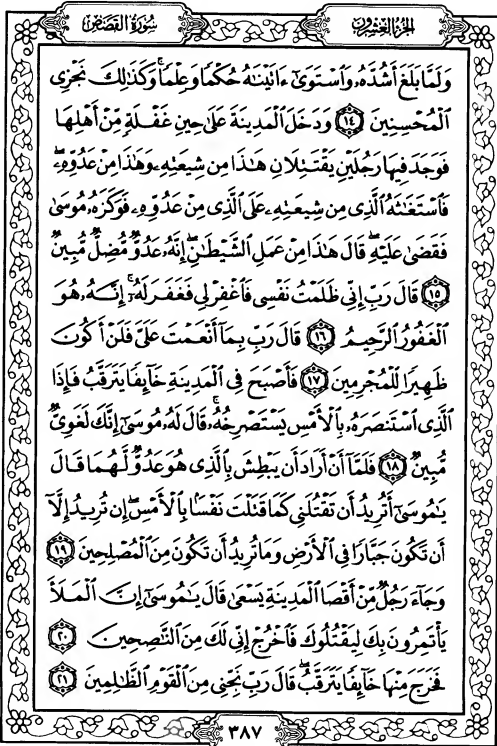 سُورَةُ القَصَصِ الجُزْءُ العِشْرُونَ
وَلَمَّا بَلَغَ أَشُدَّهُۥ وَٱسْتَوَىٰٓ ءَاتَيْنَٰهُ حُكْمًا وَعِلْمًا ۚ وَكَذَٰلِكَ نَجْزِى
ٱلْمُحْسِنِينَ ١٤ وَدَخَلَ ٱلْمَدِينَةَ عَلَىٰ حِينِ غَفْلَةٍ مِّنْ أَهْلِهَا
فَوَجَدَ فِيهَا رَجُلَيْنِ يَقْتَتِلَانِ هَٰذَا مِن شِيعَتِهِۦ وَهَٰذَا مِنْ عَدُوِّهِۦ ۖ
فَٱسْتَغَٰثَهُ ٱلَّذِى مِن شِيعَتِهِۦ عَلَى ٱلَّذِى مِنْ عَدُوِّهِۦ فَوَكَزَهُۥ مُوسَىٰ
فَقَضَىٰ عَلَيْهِ ۖ قَالَ هَٰذَا مِنْ عَمَلِ ٱلشَّيْطَٰنِ ۖ إِنَّهُۥ عَدُوٌّ مُّضِلٌّ مُّبِينٌ
١٥ قَالَ رَبِّ إِنِّى ظَلَمْتُ نَفْسِى فَٱغْفِرْ لِى فَغَفَرَ لَهُۥٓ ۚ إِنَّهُۥ هُوَ
ٱلْغَفُورُ ٱلرَّحِيمُ ١٦ قَالَ رَبِّ بِمَآ أَنْعَمْتَ عَلَىَّ فَلَنْ أَكُونَ
ظَهِيرًا لِّلْمُجْرِمِينَ ١٧ فَأَصْبَحَ فِى ٱلْمَدِينَةِ خَآئِفًا يَتَرَقَّبُ فَإِذَا
ٱلَّذِى ٱسْتَنصَرَهُۥ بِٱلْأَمْسِ يَسْتَصْرِخُهُۥ ۚ قَالَ لَهُۥ مُوسَىٰٓ إِنَّكَ لَغَوِىٌّ
مُّبِينٌ ١٨ فَلَمَّآ أَنْ أَرَادَ أَن يَبْطِشَ بِٱلَّذِى هُوَ عَدُوٌّ لَّهُمَا قَالَ
يَٰمُوسَىٰٓ أَتُرِيدُ أَن تَقْتُلَنِى كَمَا قَتَلْتَ نَفْسًۢا بِٱلْأَمْسِ ۖ إِن تُرِيدُ إِلَّآ
أَن تَكُونَ جَبَّارًا فِى ٱلْأَرْضِ وَمَا تُرِيدُ أَن تَكُونَ مِنَ ٱلْمُصْلِحِينَ ١٩
وَجَآءَ رَجُلٌ مِّنْ أَقْصَا ٱلْمَدِينَةِ يَسْعَىٰ قَالَ يَٰمُوسَىٰٓ إِنَّ ٱلْمَلَأَ
يَأْتَمِرُونَ بِكَ لِيَقْتُلُوكَ فَٱخْرُجْ إِنِّى لَكَ مِنَ ٱلنَّٰصِحِينَ ٢٠
فَخَرَجَ مِنْهَا خَآئِفًا يَتَرَقَّبُ ۖ قَالَ رَبِّ نَجِّنِى مِنَ ٱلْقَوْمِ ٱلظَّٰلِمِينَ ٢١
٣٨٧